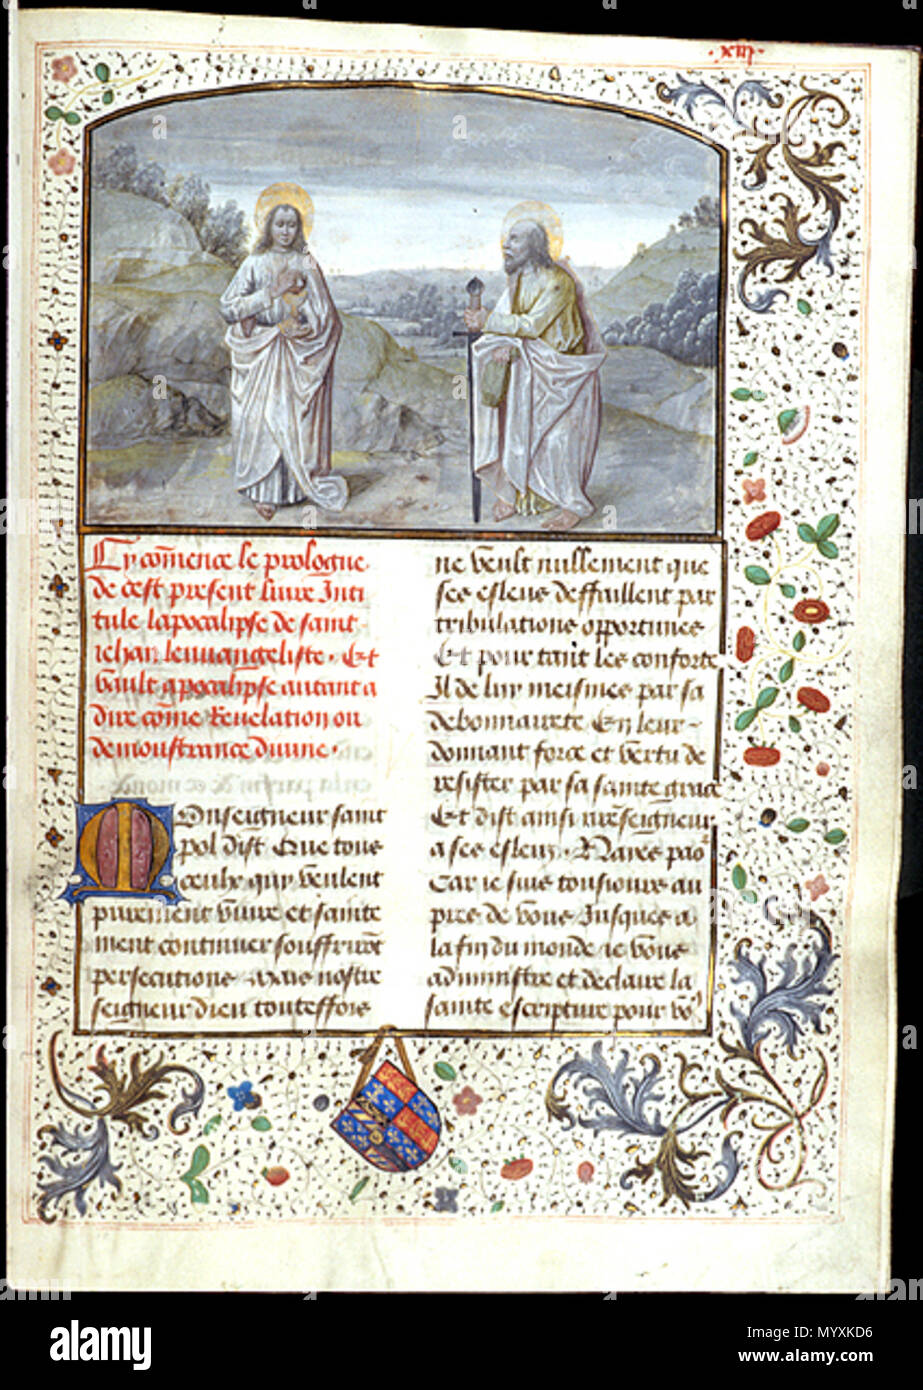 .xiij.
Cy cōmence le prologue
de cest present livre Inti
tule lapocalipse de saint
iehan leuuangeliste. Et
vault apocalipse autant a
dire cōme Reuelation ou
demonstrance diuine.
Monseigneur saint
pol dist Que tous
ceulx qui veulent
purement viure et sainte
ment continuer souffrirōt
persecutions. Mais nostre
seigneur dieu touteffois
ne veult nullement que
ses esleus deffaillent par
tribulations opportunes
Et pour tant les conforte
Il de luy meismes par sa
debonnairete En leur
donnant force et vertu de
resister par sa sainte grace
Et dist ainsi nreseigneur
a ses esleuz. Naies paor
Car ie suis tousiours au
pres de vous Jusques a
la fin du monde ie vous
administre et declaire la
sainte escripture pour vo9
a
alamy
Image ID: MYXKD6
www.alamy.com